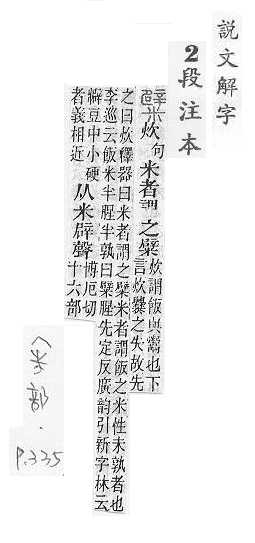 說文解字
2段注本
糪 炊句米者謂之糪炊謂飯與鬻也下言炊爨之失故先
之曰炊釋器曰米者謂之糪米者謂飯之米性未孰者也
李巡云飯米半腥半孰曰糪腥先定反廣韵引新字林云
糪豆中小硬者義相近从米辟聲博厄切十六部
〈米部．
P.335